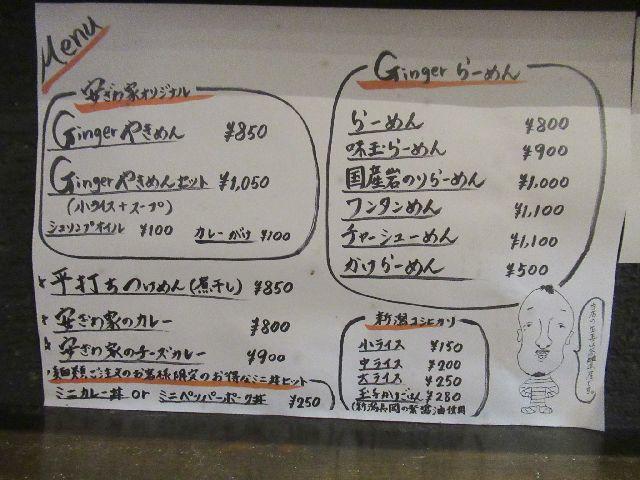 Menu
安ざわ家オリジナル
Gingerやきめん ¥850
Gingerやきめんセット ¥1,050
(小ライス+スープ)
シュリンプオイル ¥100 カレーがけ ¥100
平打ちつけめん(煮干し) ¥850
安ざわ家のカレー ¥800
安ざわ家のチーズカレー ¥900
麺類ご注文のお客様限定のお得なミニ丼セット
ミニカレー丼 or ミニペッパーポーク丼 ¥250
Ginger らーめん
らーめん ¥800
味玉らーめん ¥900
国産岩のりらーめん ¥1,000
ワンタンめん ¥1,100
チャーシューめん ¥1,100
かけらーめん ¥500
新潟コシヒカリ
小ライス ¥150
中ライス ¥200
大ライス ¥250
玉子かけごはん ¥280
(新潟長岡の紫醤油使用